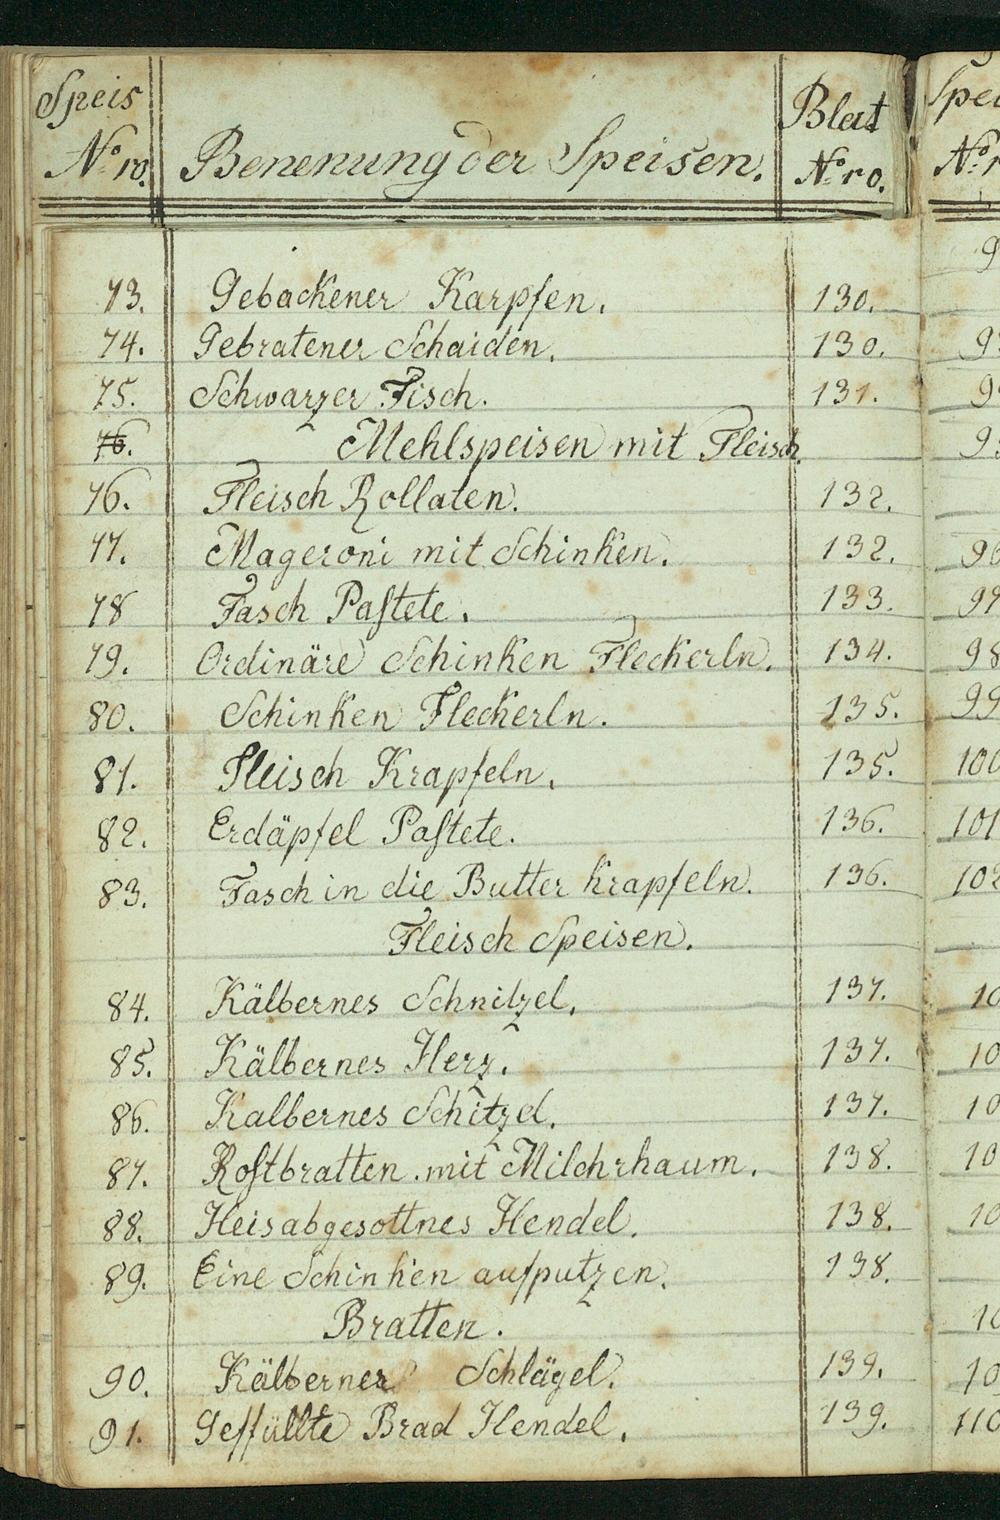 Speis Blat Spei
Nº ro. Benenung der Speisen. Nº ro. Nº r
73. Gebackener Karpfen. 130. 9
74. Gebratener Schaiden. 130. 9
75. Schwarzer Fisch. 131. 9
76. Mehlspeisen mit Fleisch. 9
76. Fleisch Rollaten. 132.
77. Mageroni mit Schinken. 132. 96
78 Fasch Paſtete. 133. 97
79. Ordinäre Schinken Fleckerln. 134. 98
80. Schinken Fleckerln. 135. 99
81. Fleisch Krapfeln. 135. 100
82. Erdäpfel Paſtete. 136. 101
83. Fasch in die Butter krapfeln. 136. 102
Fleisch Speisen.
84. Kälbernes Schnitzel. 137. 10
85. Kälbernes Herz. 137. 10
86. Kalbernes Schitzel. 137. 10
87. Roſtbratten. mit Milchrhaum. 138. 10
88. Heisabgesottnes Hendel. 138. 10
89. Eine Schinken aufputzen. 138.
Bratten. 10
90. Kälberner Schlägel. 139. 10
91. Geffüllte Brad Hendel. 139. 110